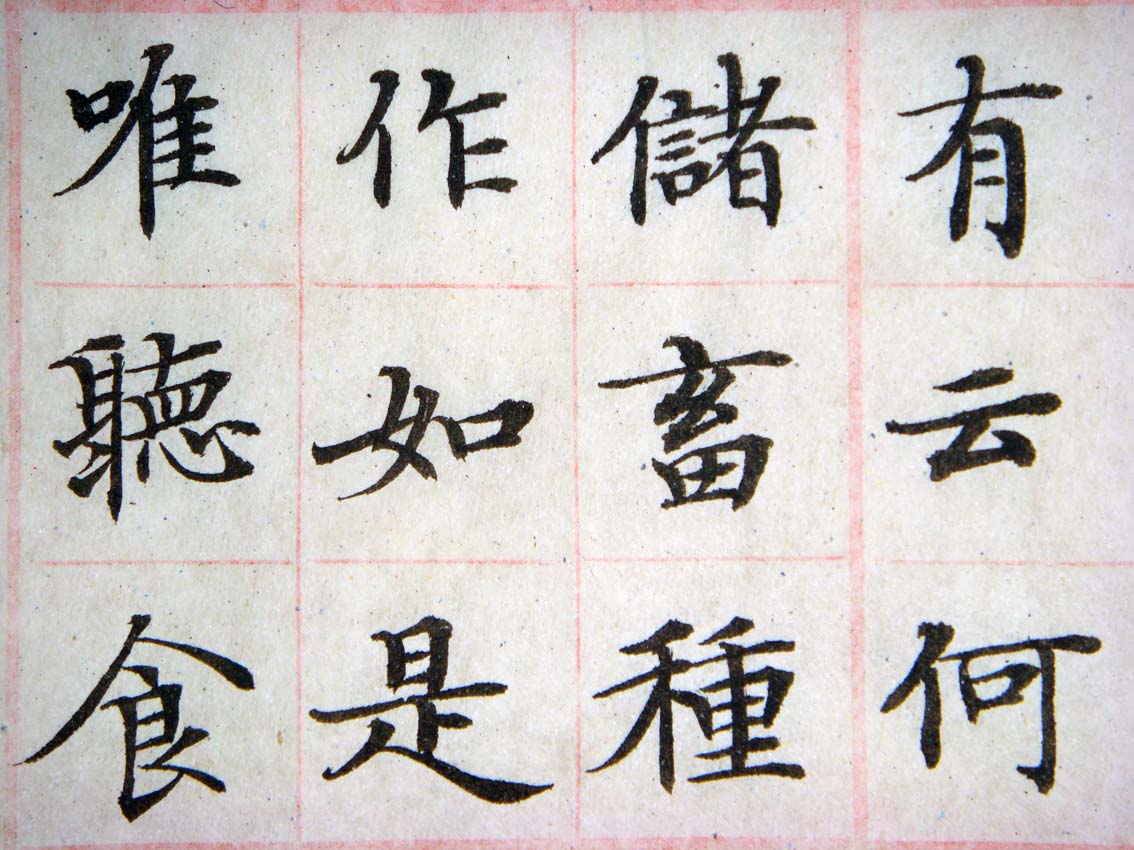 有云何
儲畜種
作如是
唯聽食